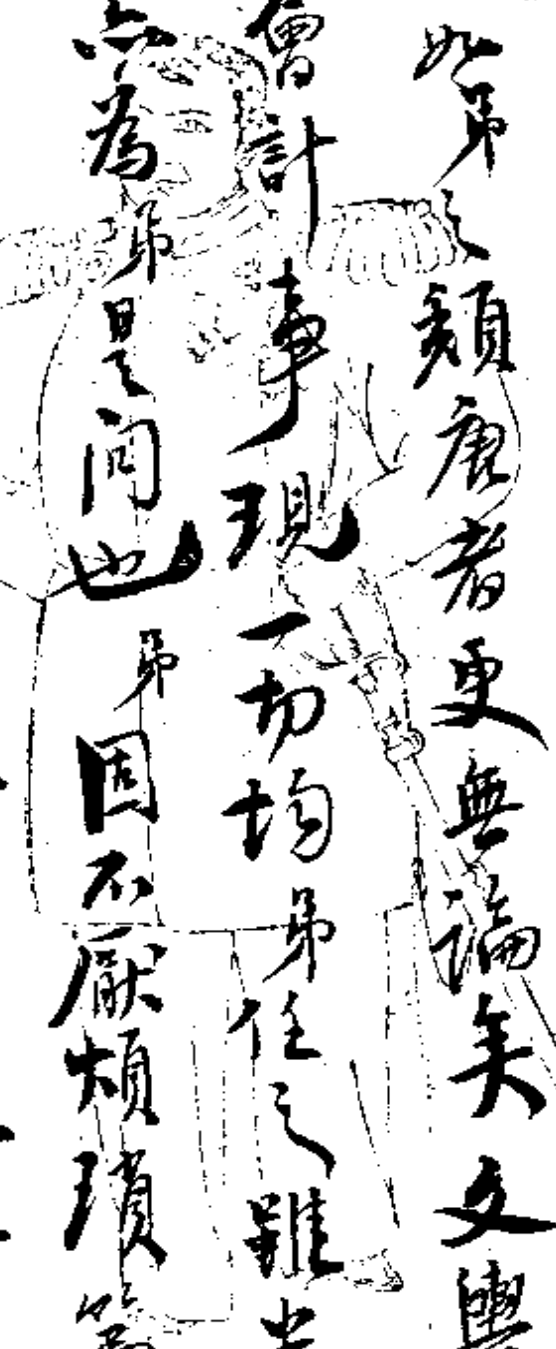 如弟之頹唐者更無論矣文輿
會計事現一切均弟任之雖
亦為弟是問也弟固不厭煩瑣